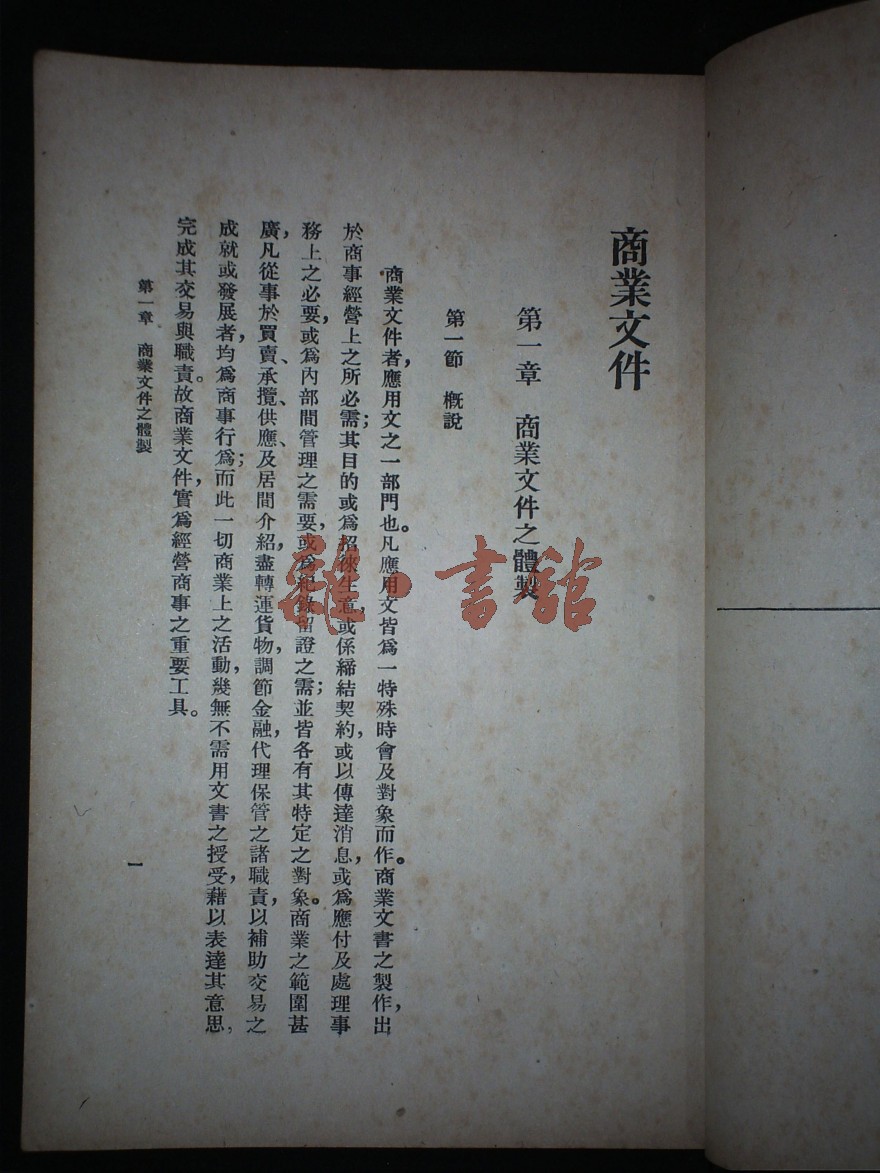 商業文件
第一章　商業文件之體製
第一節　概說
商業文件者，應用文之一部門也。凡應用文皆爲一特殊時會及對象而作。商業文書之製作，出
於商事經營上之所必需；其目的或爲招徠生意，或係締結契約，或以傳達消息，或爲應付及處理事
務上之必要，或爲內部間管理之需要，或爲紀錄留證之需；並皆各有其特定之對象。商業之範圍甚
廣，凡從事於買賣、承攬、供應、及居間介紹，盡轉運貨物，調節金融，代理保管之諸職責，以補助交易之
成就或發展者，均爲商事行爲；而此一切商業上之活動，幾無不需用文書之授受，藉以表達其意思，
完成其交易與職責。故商業文件，實爲經營商事之重要工具。
第一章　商業文件之體製
一
雜·書館